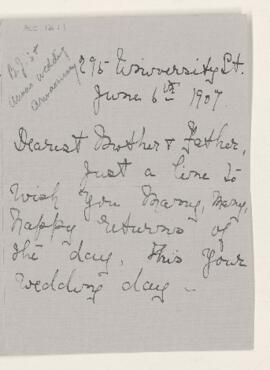 295 University St.
June 6th 1907.
Dearest Mother & Father,
Just a line to
wish you many, many,
happy returns of
the day, this your
wedding day -